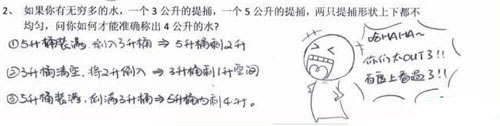 2、 如果你有无穷多的水，一个 3 公升的提捅，一个 5 公升的提捅，两只提捅形状上下都不
均匀，问你如何才能准确称出 4 公升的水？
①5升桶装满，倒入3升桶 ⇒ 5升桶剩2升
②3升桶清空，将2升倒入 ⇒ 3升桶剩1升空间
③5升桶装满，倒满3升桶 ⇒ 5升桶内剩4升。
哈HAHA~
你们太OUT了!!
百度上看过了!!